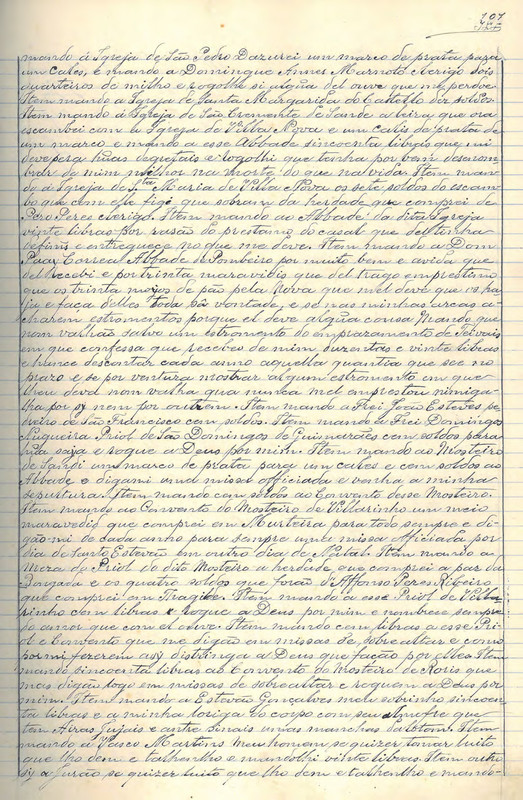 107
mando á Igreja de São Pedro Dazurei um marco de prata para
um Cales, e mando a Domingue Annes Marnoto Clerigo dois
quarteiros de milho e rogolhe si algũa del ouve que me perdoe.
Item mando a Igreja de Santa Margarida do Castello dez soldos.
Item mando á Igreja de São Cremente de Sande a leira que ora
escambei com a Igreja de Villa Nova e um calis de prata de
um marco e mando a esse Abbade sincoenta libras que mi
deve pera hũas degretais e logolhi que tenha por bem desemm
brar de mim melhor na morte do que na vida. Item man
do á Igreja de Sta Maria de Villa Nova os sete soldos do escam
bo que com elle fige que sobram da herdade que comprei de
Pero Peres clerigo. Item mando ao Abbade da dita Igreja
vinte libras por razão do prestamo do casal que del tenha
defims e entreguece no que me deve. Item mando a Dom
Paay Correa Abbade de Pombeiro por muito bem e avida que
del recebi e por trinta maravidis que del trago emprestimo
que os trinta mojos de pão pela Nova que mel deve que os ha
ja e faça delles toda sã vontade, e se nas minhas arcas a
charem estromentos porque el deva algũa cousa Mando que
nom valhão salvo um estromento do emprazamento de Seivais
em que confessa que recebeo de mim duzentas e vinte libras
e hance descontar cada anno aquella quantia que see no
prazo e se por ventura mostrar algum estromento em que
lheu deva nom valha qua nunca mel emprestou nimiga
lha por sy nem por outrem. Item mando a Frei João Esteves pe
dreiro de São Francisco cem soldos. Item mando a Frei Domingos
Nugueira Priol de São Domingos de Guimarães cem soldos para
uũa saja e rogue a Deus por mim. Item mando ao Mosteiro
de Landi um marco de prata para um cales e cem soldos ao
Abbade e digami uma missa officiada e venha a minha
sepultura. Item mando cem soldos ao Convento desse Mosteiro.
Item mando ao Convento do Mosteiro de Villarinho um meio
maravedis que comprei em Murteira para todo sempre e di
gão mi de cada anho para sempre uma missa Aficiada por
dia de Santo Estevão em outro dia de Natal. Item mando a
Meza do Priol do dito Mosteiro a herdade que comprei a par da
Longada e os quatro soldos que forão d'Affonso Peres Ribeiro
que comprei em Fragike. Item mando a esse Priol de Villa
rinho cem libras e rogue a Deus por mim e nembrece sempre
do amor que com el ouve. Item mando cem libras a esse Pri
ol e Convento que me digão em missas de sobrealtar e como
por mi fezerem asy distinga a Deus que fação por elles. Item
mando sincoenta libras ao Convento do Mosteiro de Roris que
mas digão logo em missas de sobrealtar e roguem a Deus por
mim. Item mando a Estevão Gonçalves meu sobrinho sincoen
ta libras e a minha loriga do corpo com seu almofre que
tem Airas Gujais e antre sinais umas manchas da lotom. Item
mando a Vasco Martins meu homem se quizer tomar luito
que lho dem e talhenlho e mandolhi vinte libras. Item outro
sy a Jurão se quizer luito que lho dem e talhenlho e mando-